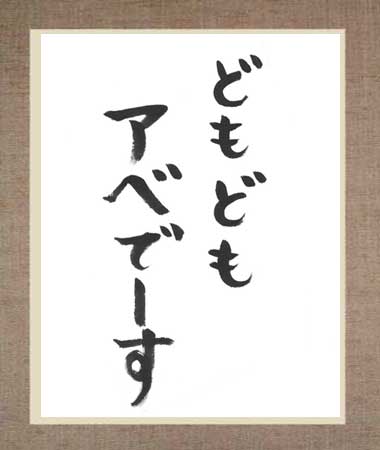 どもども
アベでーす